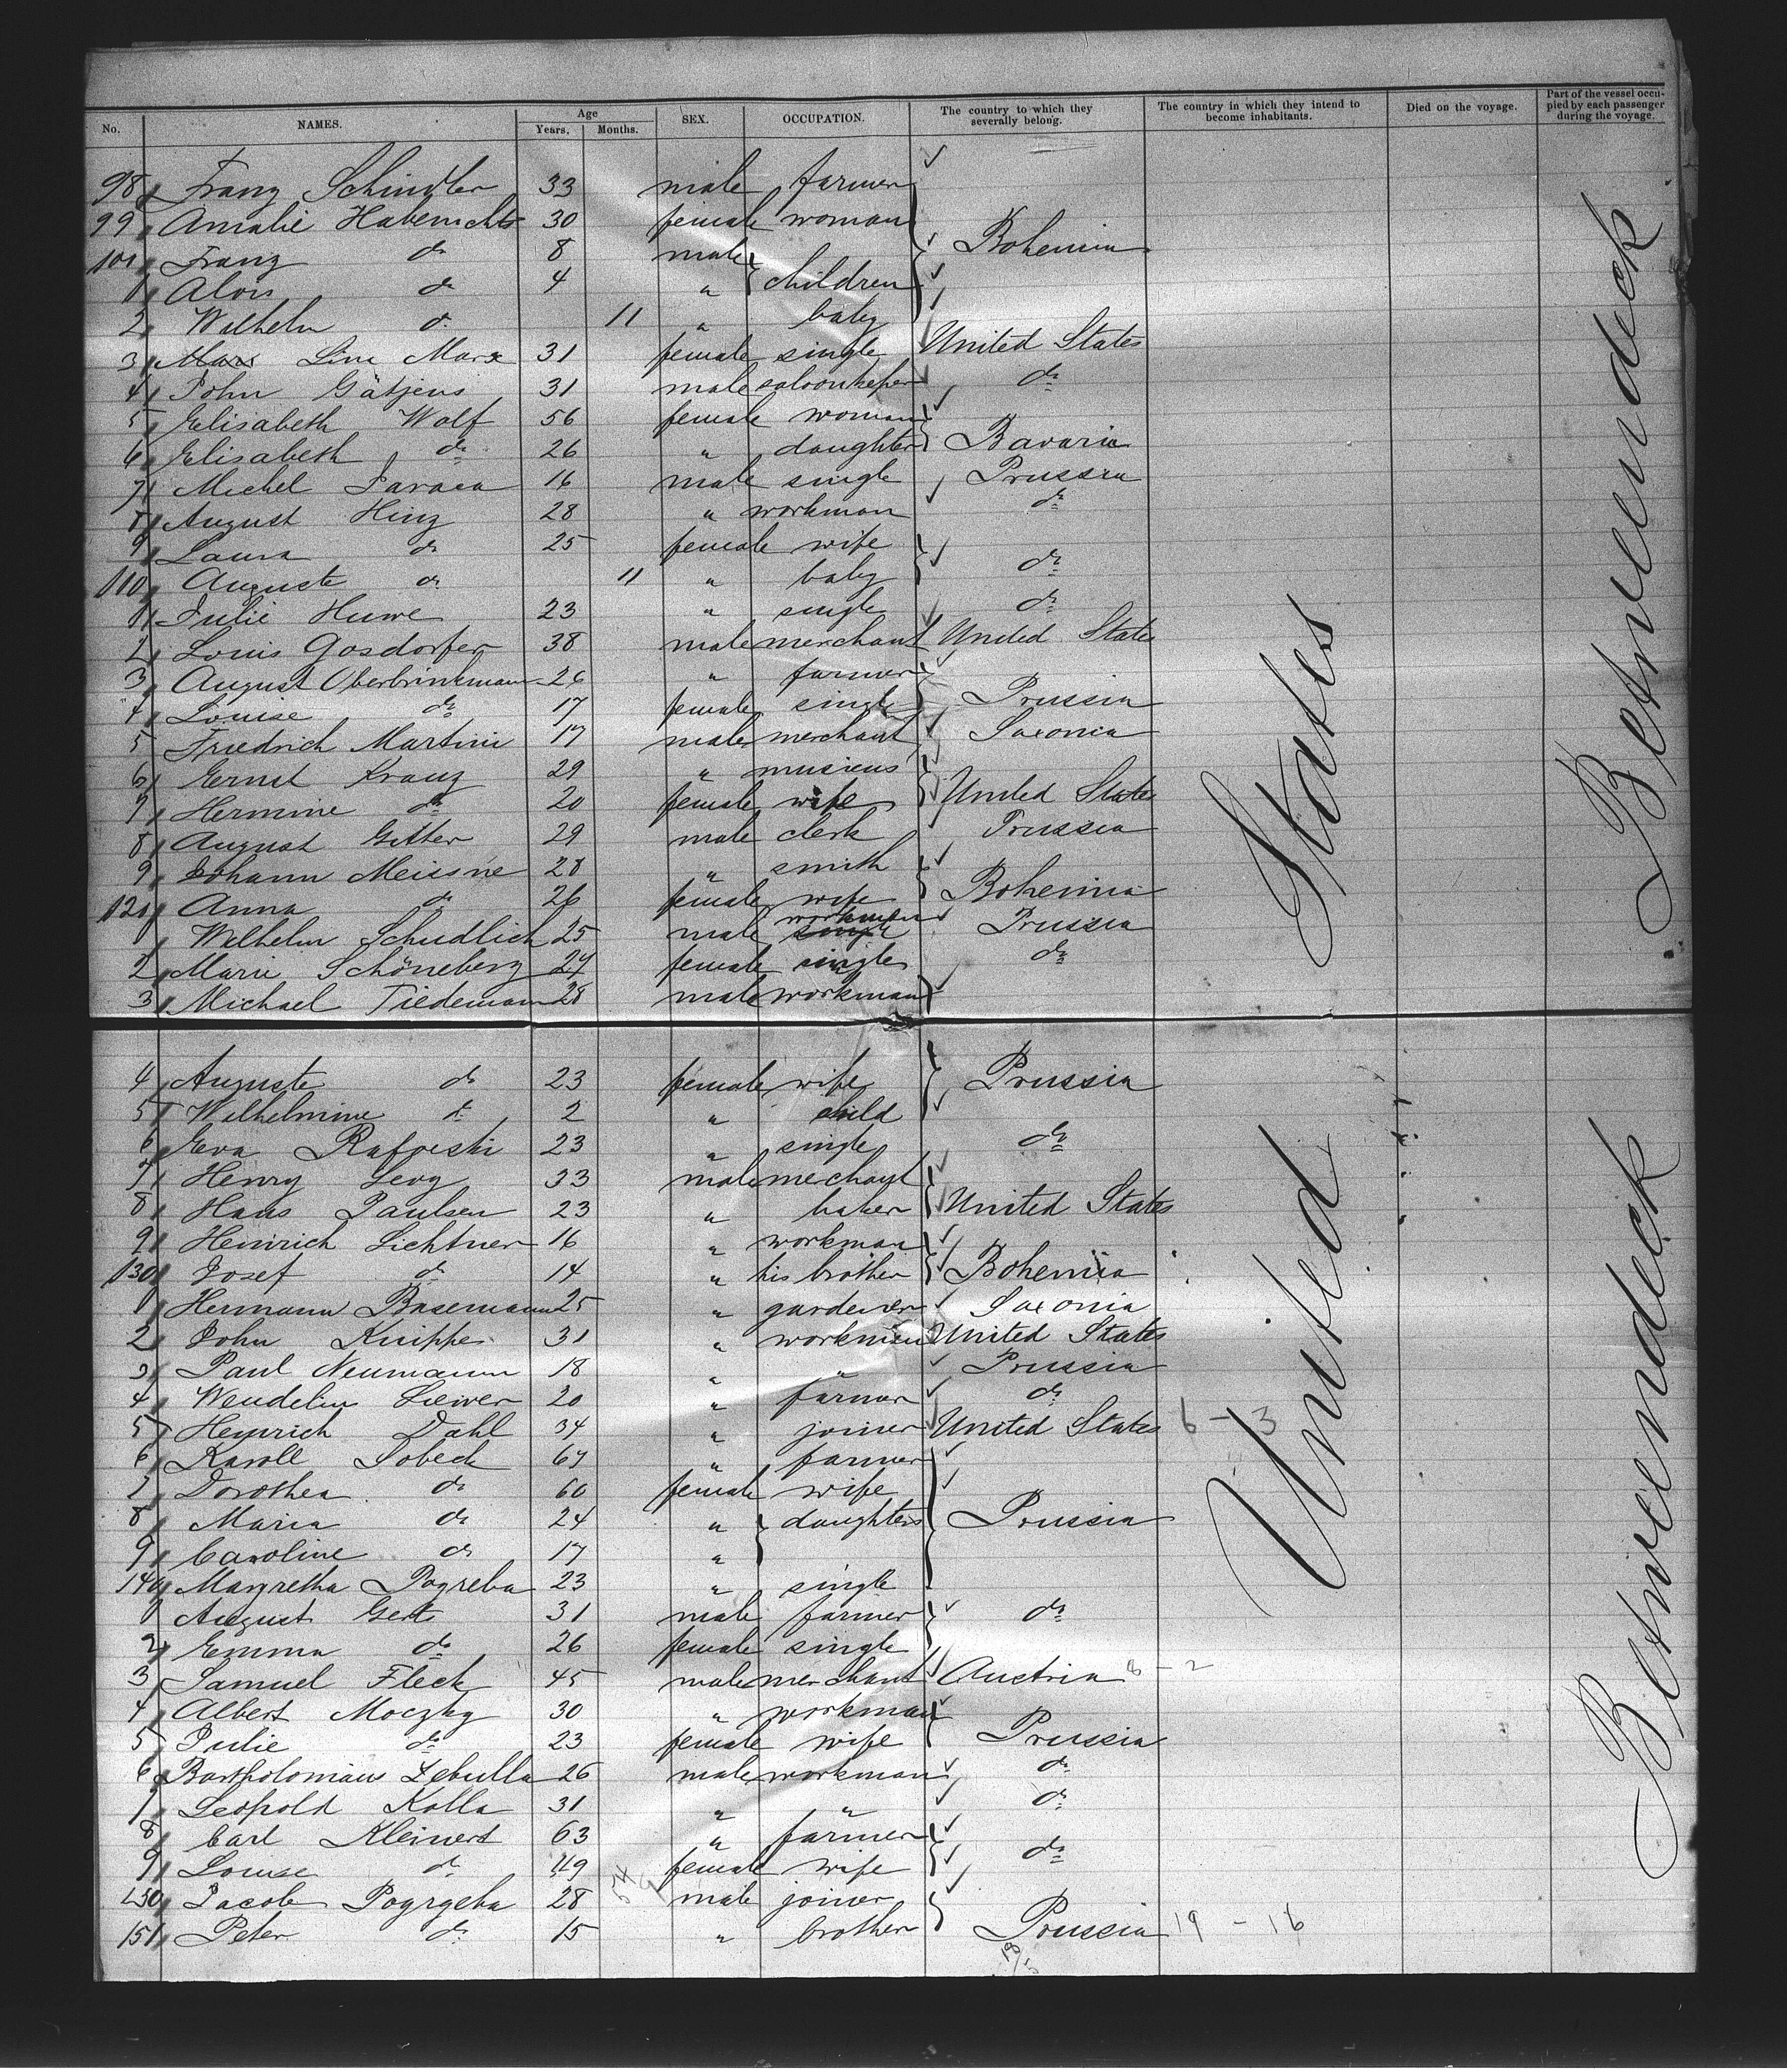 No. NAMES. Age Years. Months. SEX. OCCUPATION. The country to which they severally belong. The country in which they intend to become inhabitants. Died on the voyage. Part of the vessel occupied by each passenger during the voyage.
98 Franz Schindler 33 male farmer
99 Amalie Habenichts 30 female woman Bohemia
101 Franz do 8 male
1 Alois do 4 " children
2 Wilhelm do 11 " baby
3 Marx Line Marx 31 female single United States
4 John Gätjens 31 male saloonkeper do
5 Elisabeth Wolf 56 female woman
6 Elisabeth do 26 " daughter Bavaria
7 Michel 16 male single Prussia
8 August Hinz 28 " workman do
9 Laura do 25 female wife
110 Auguste do 11 " baby do
1 Julie Huwe 23 " single do
2 Louis Gosdorfer 38 male merchant United States
3 August Oberbrinkmann 26 " farmer
4 Louise do 17 female single Prussia
5 Friedrich Martini 17 male merchant Saxonia
6 Ernst Kranz 29 " musicus
7 Hermine do 20 female wife United States
8 August Gitter 29 male clerk Prussia
9 Johann Meissne 28 " smith
120 Anna do 26 female wife Bohemia
1 Wilhelm Schudlich 25 male single workman Prussia
2 Marie Schöneberg 24 female single do
3 Michael Tiedemann 28 male workman
4 Auguste do 23 female wife Prussia
5 Wilhelmine do 2 " child
6 Eva 23 " single do
7 Henry Levy 33 male merchant
8 Hans Paulsen 23 " baker United States
9 Heinrich Lichtner 16 " workman
130 Josef do 14 " his brother Bohemia
1 Hermann Basemann 25 " gardener Saxonia
2 John Knippe 31 " workmen United States
3 Paul Neumann 18 " " Prussia
4 Wendelin Liewer 20 " farmer do
5 Heinrich Dahl 34 " joiner United States 6 - 3
6 Karoll Sobeck 67 " farmer
7 Dorothea do 60 female wife
8 Maria do 24 " daughters Prussia
9 Caroline do 17 "
140 Margretha Pogreba 23 " single
1 August Gerts 31 male farmer do
2 Emma do 26 female single
3 Samuel Fleck 45 male merchant Austria 6 - 2
4 Albert Moczky 30 " workman
5 Julie do 23 female wife Prussia
6 Bartholomäus Zebulla 26 male workman do
7 Leopold Kolla 31 " " do
8 Carl Kleinert 63 " farmer
9 Louise do 49 female wife do
150 Jacob Pogrzeba 28 male joiner
151 Peter do 15 " brother Prussia 19 - 16
United States
Betweendeck
Betweendeck